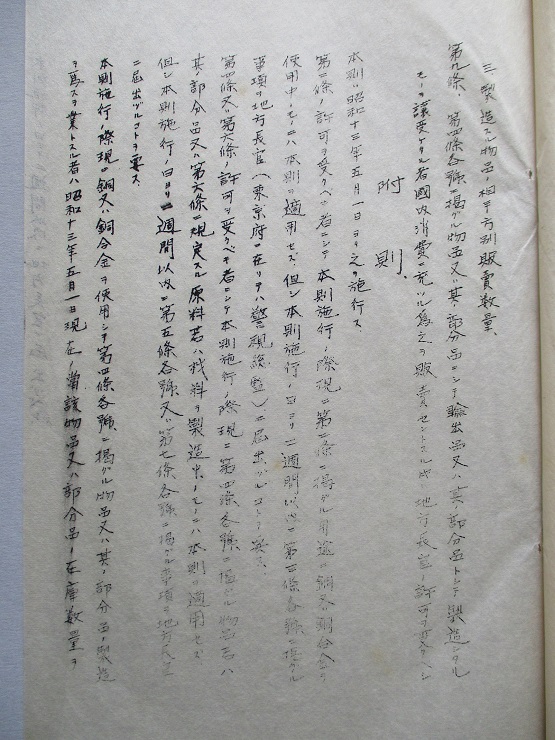 三、製造スル物品ノ相手方別販賣数量、
第九條、第四條各號ニ掲グル物品又ハ其ノ部分品ニシテ輸出品又ハ其ノ部分品トシテ製造シタル
モノヲ譲受ケタル者國内消費ニ充ツル為之ヲ販賣セントスル時ハ地方長官ノ許可ヲ受クベシ
附則、
本則ハ昭和十三年五月一日ヨリ之ヲ施行ス、
第二條ノ許可ヲ受クベキ者ニシテ本則施行ノ際現ニ第二條ニ掲グル用途ニ銅又ハ銅合金ヲ
使用中ノモノニハ本則ヲ適用セズ但シ本則施行ノ日ヨリ二週間以内ニ第三條各號ニ掲グル
事項ヲ地方長官（東京府ニ在リテハ警視総監）ニ届出ヅルコトヲ要ス、
第四條又ハ第六條ノ許可ヲ受クベキ者ニシテ本則施行ノ際現ニ第四條各號ニ掲グル物品若ハ
其ノ部分品又ハ第六條ニ規定スル原料若ハ材料ヲ製造中ノモノニハ本則ヲ適用セズ
但シ本則施行ノ日ヨリ二週間以内ニ第五條各號又ハ第七條各號ニ掲グル事項ヲ地方長官
ニ届出ヅルコトヲ要ス
本則施行ノ際現ニ銅又ハ銅合金ヲ使用シテ第四條各號ニ掲グル物品又ハ其ノ部分品ノ製造
ヲ為スヲ業トスル者ハ昭和十三年五月一日現在ノ當該物品又ハ部分品ノ在庫数量ヲ